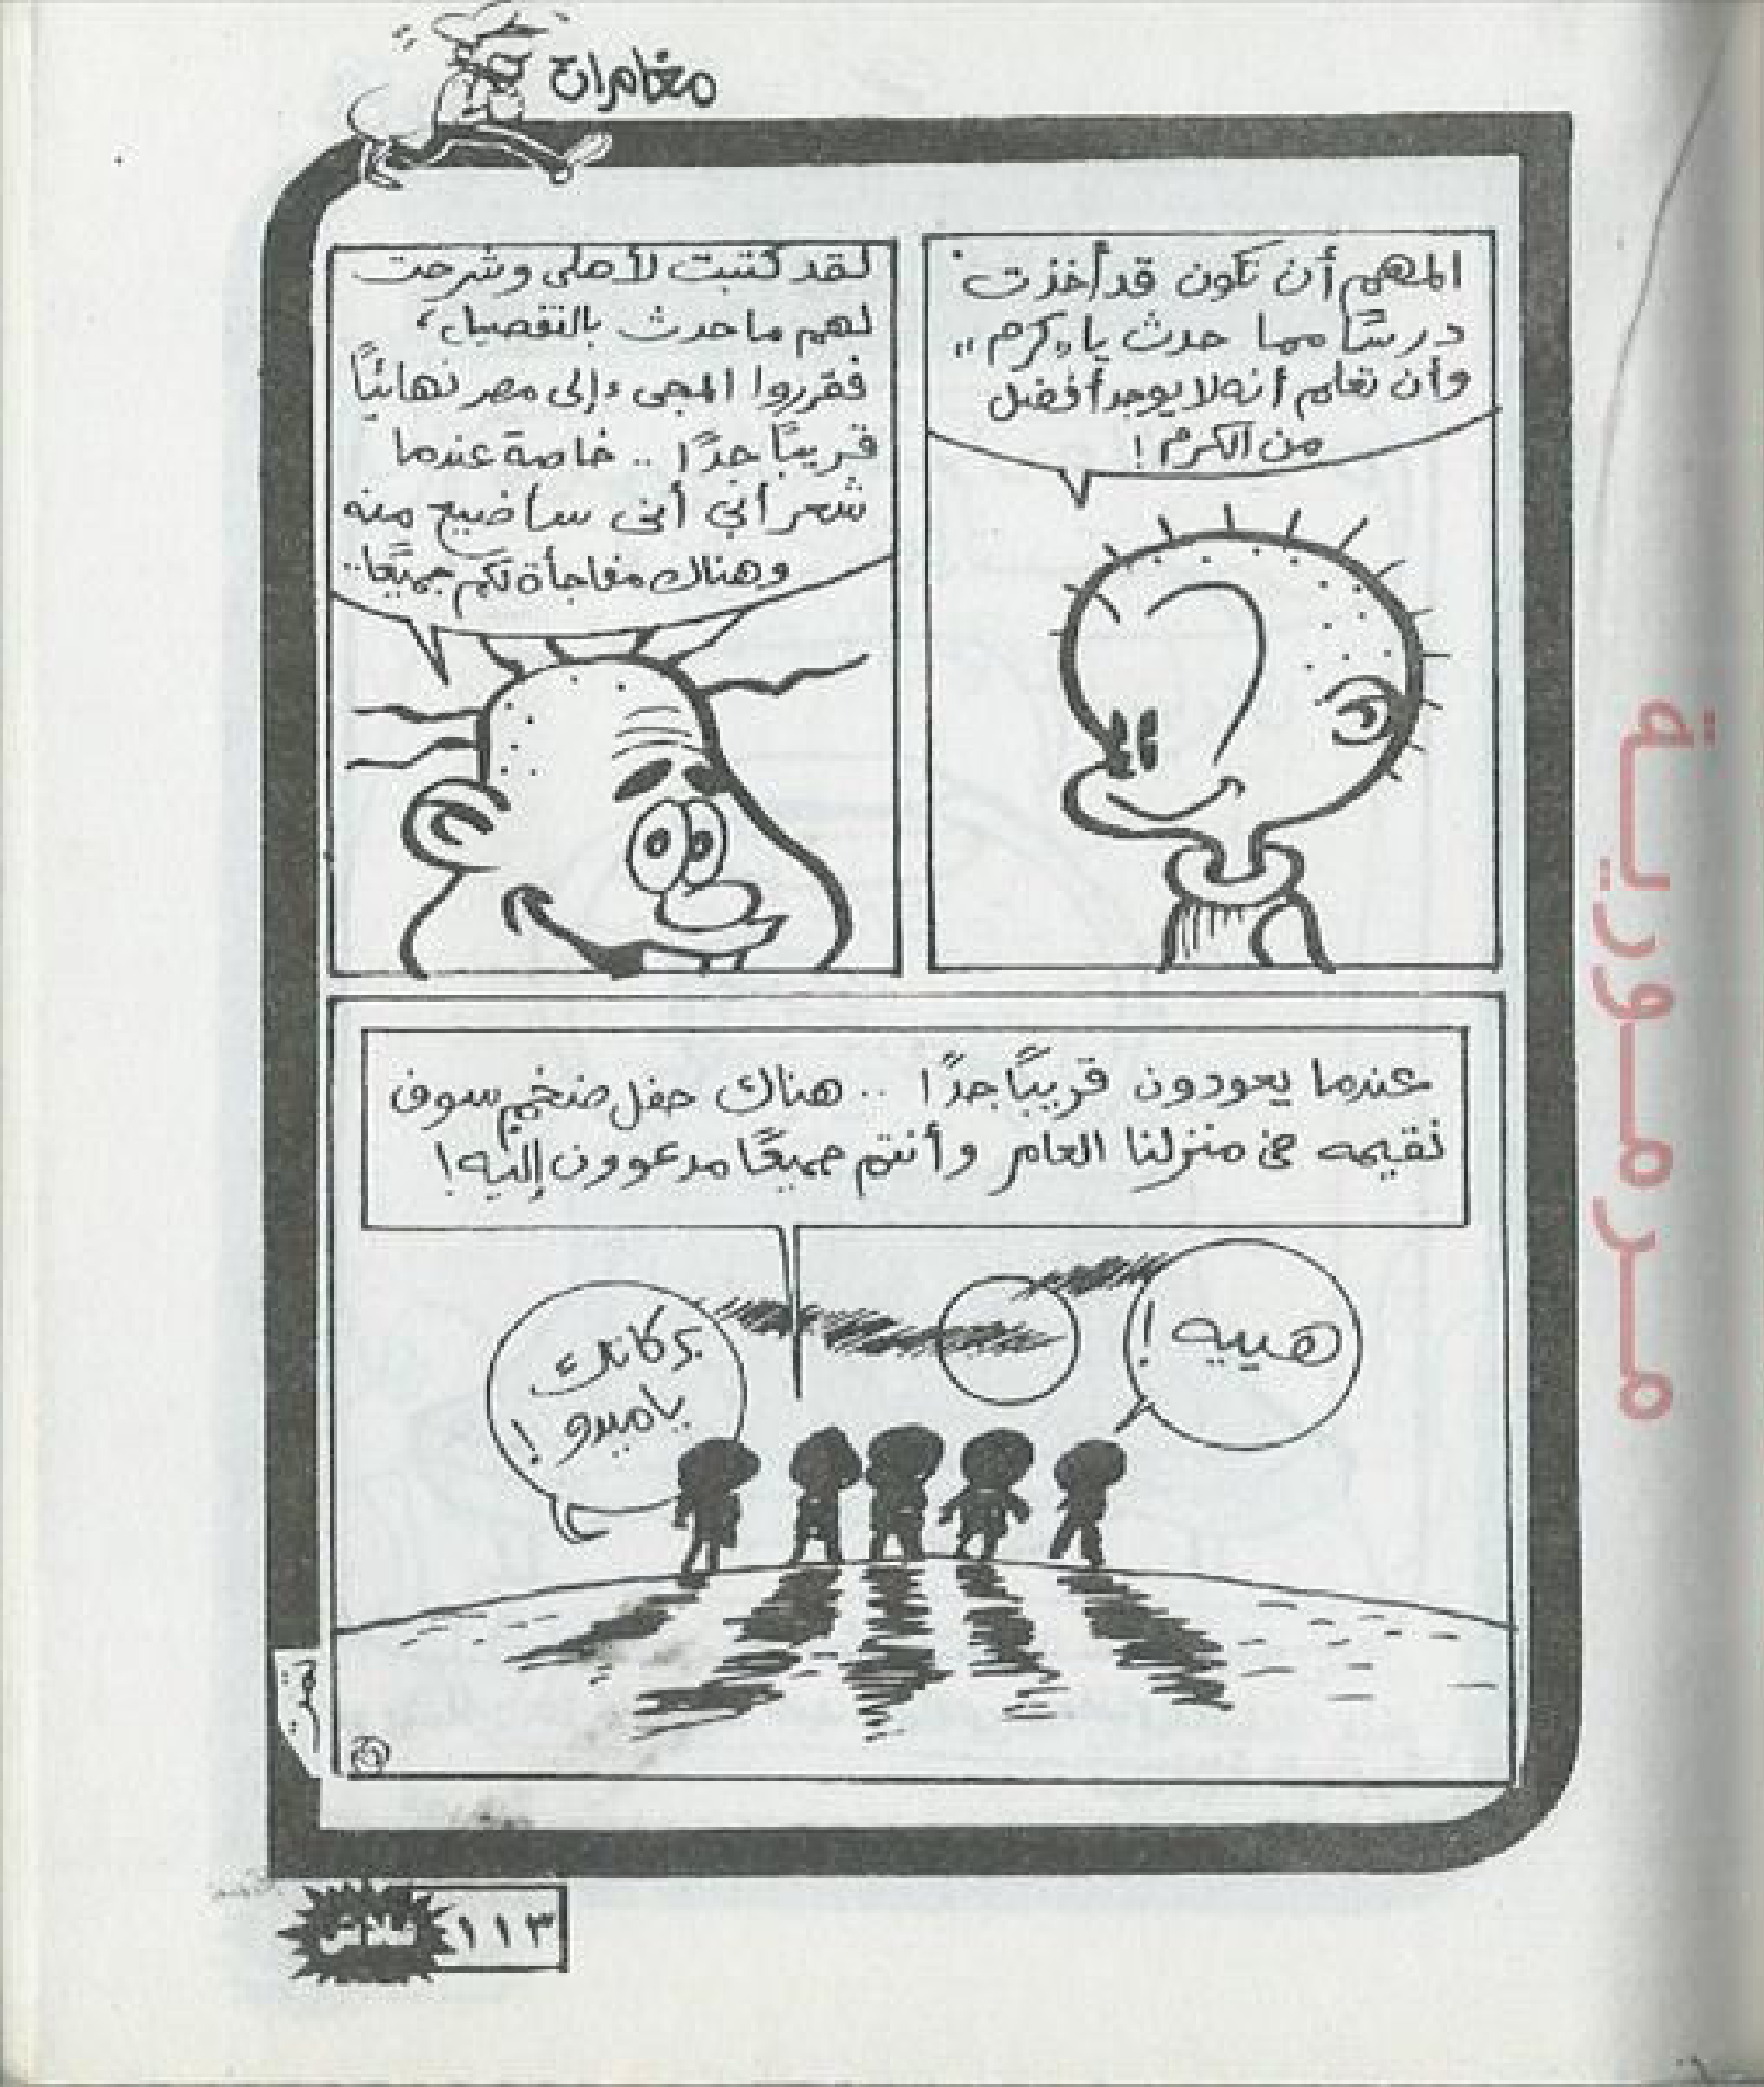 مغامرات
المهم أن تكون قد أخذت
درسًا مما حدث يا "كرم"
وأن تعلم أنه لا يوجد أفضل
من الكرم!
لقد كتبت لأهلى وشرحت
لهم ما حدث بالتفصيل،
فقرروا المجىء إلى مصر نهائيًا
قريبًا جدًا .. خاصة عندما
شعر أبى أنى سأضيع منه
وهناك مفاجأة لكم جميعًا..
عندما يعودون قريبًا جدًا .. هناك حفل ضخم سوف
نقيمه فى منزلنا العامر وأنتم جميعًا مدعوون إليه!
هييه!
بركاتك
يا ميدو!
تمت
فلاش ١١٣
مرمورية